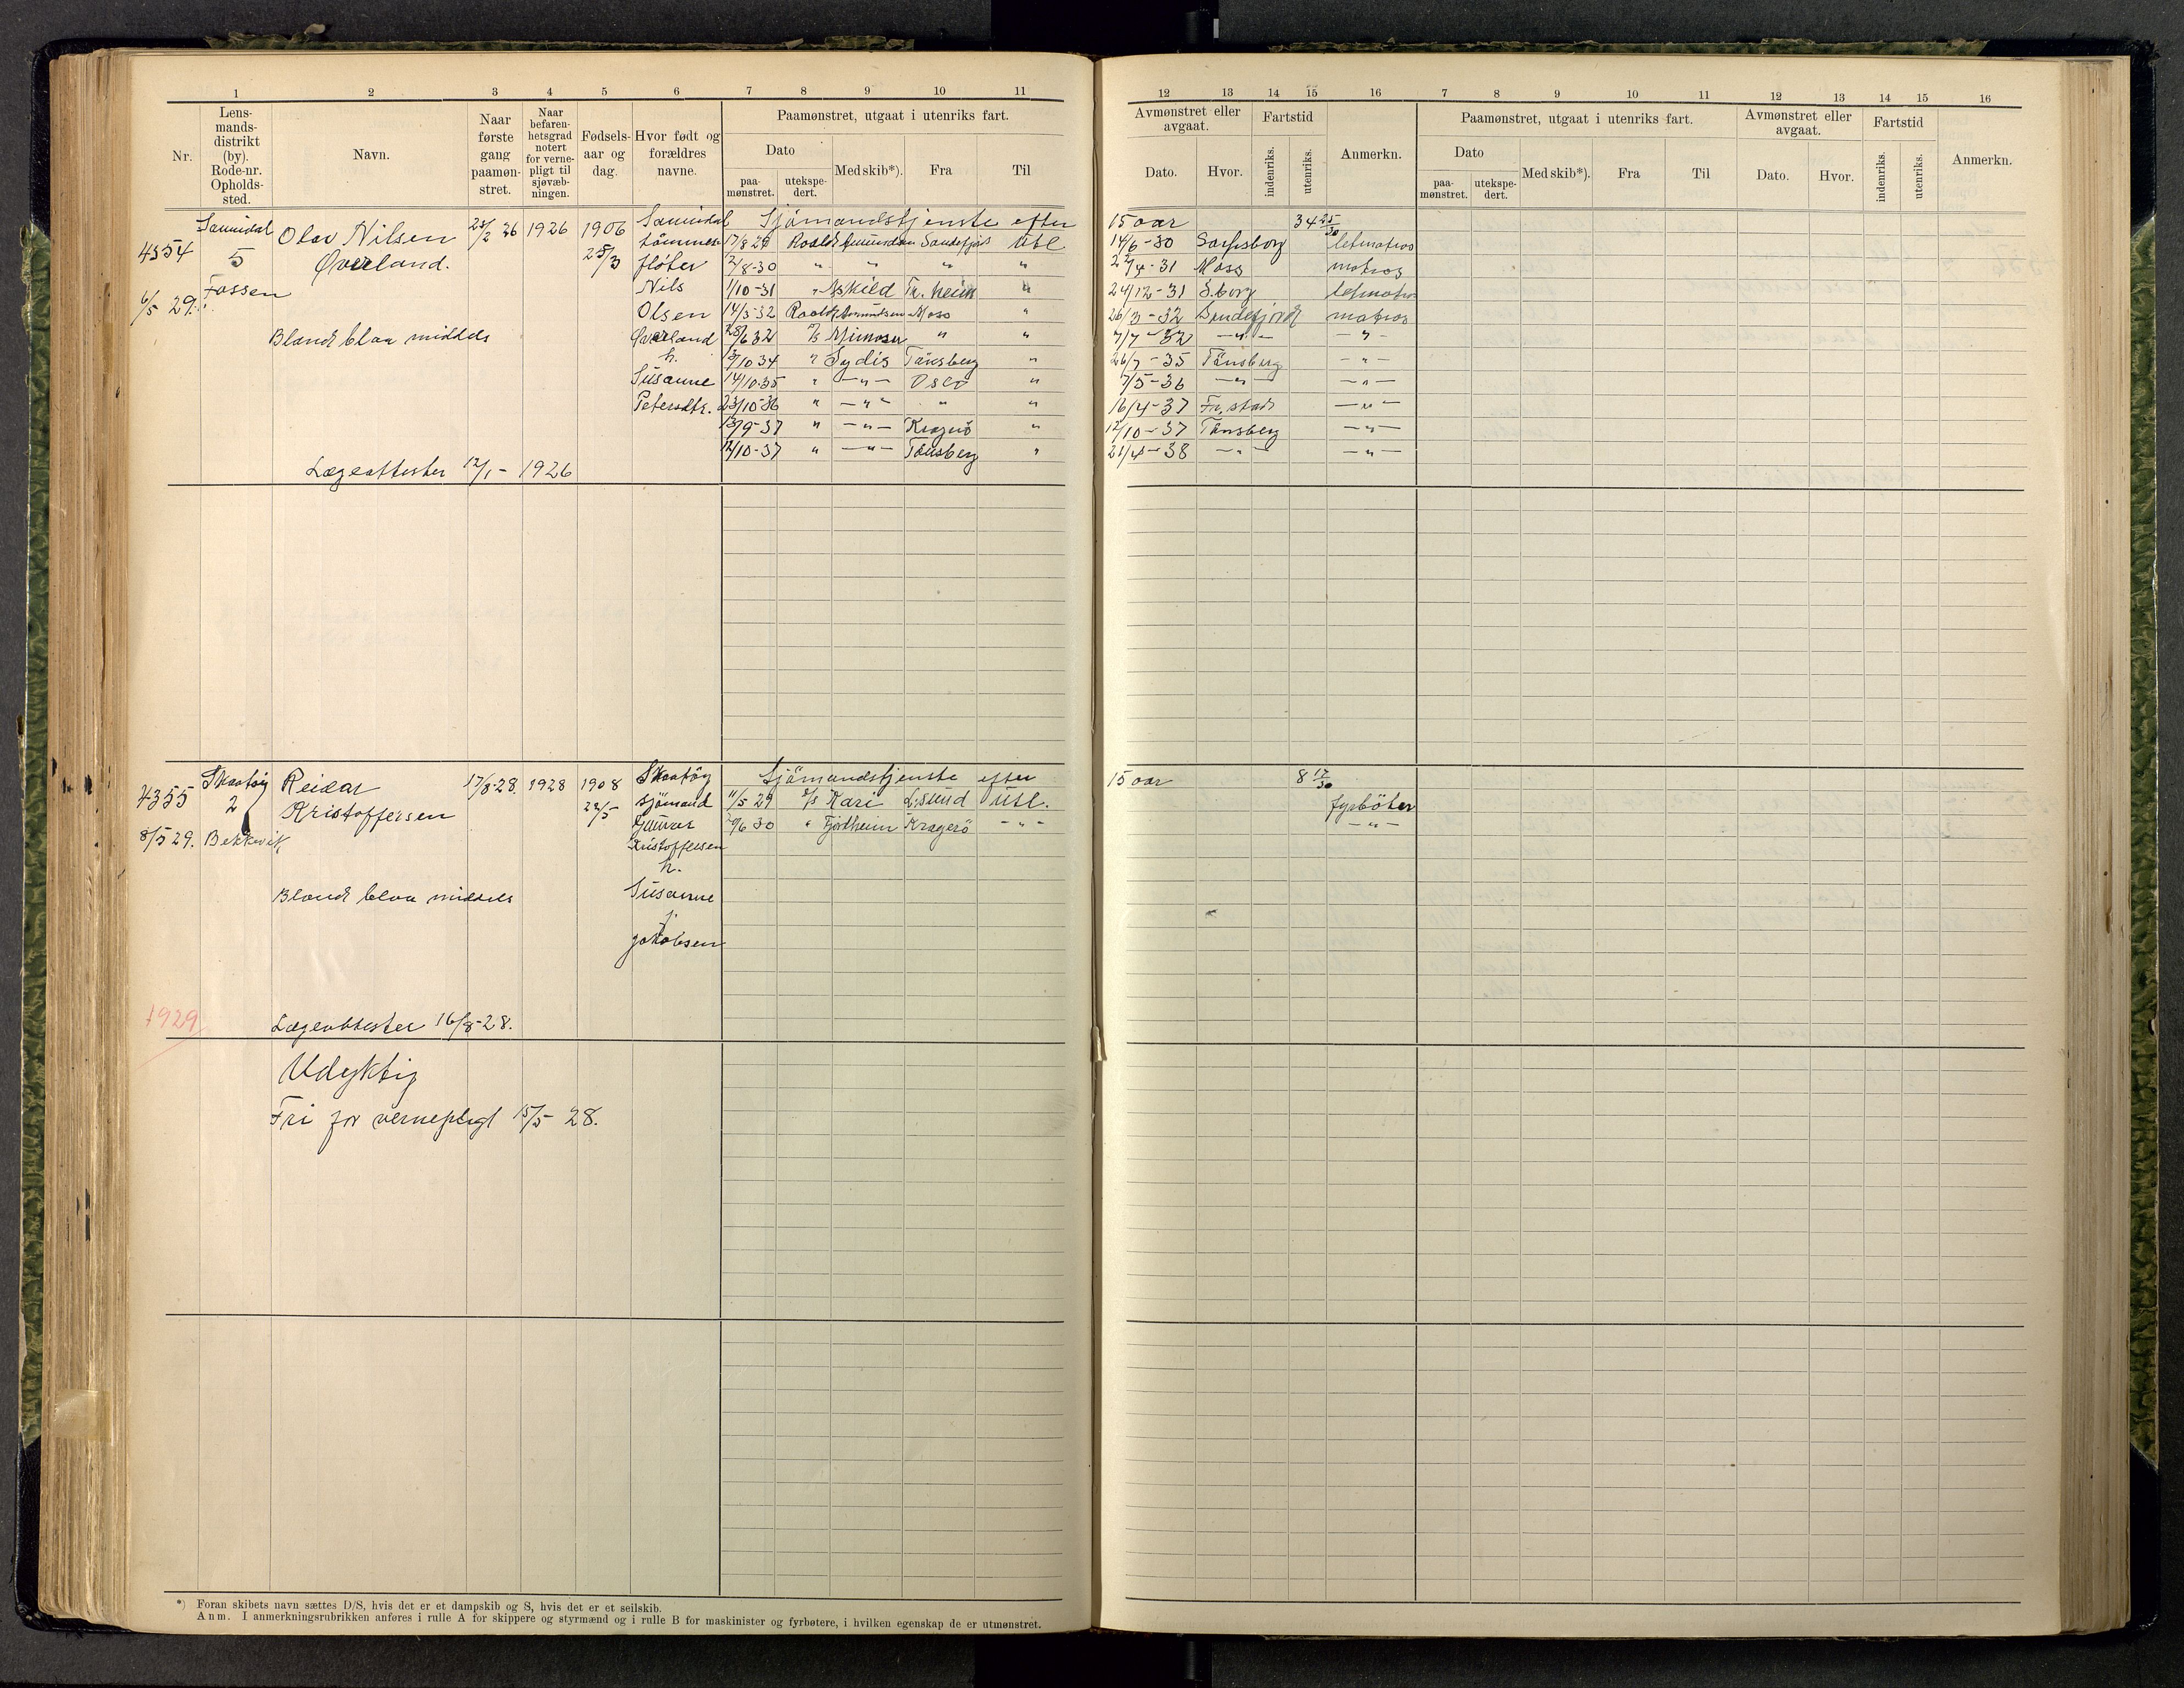 1 2 3 4 5 6 7 8 9 10 11
Nr.
Lens-
mands-
distrikt
(by).
Rode-nr.
Opholds-
sted.
Navn.
Naar
første
gang
paamøn-
stret.
Naar
befaren-
hetsgrad
notert
for verne-
pligt til
sjøvæb-
ningen.
Fødsels-
aar og
dag.
Hvor født og
forældres
navne.
Paamønstret, utgaat i utenriks fart.
Dato
paa-
mønstret.
utekspe-
dert.
Med skib*).
Fra
Til
4354
6/5 29.
Sannidal
5
Fossen
Olav Nilsen
Øverland.
Blond blaa middels
Lægeattester 12/1 - 1926
1926
1906
25/3
Sannidal
tømmer
fløter
Nils
Olsen
Øverland
h.
Susanne
Petersdtr.
Sjømandstjenste efter
17/8 29 Roald Amundsen Sandefjord Utl
12/8-30 " " " "
1/10-31 " Askild Tr. heim "
14/3-32 Roald Amundsen Moss "
28/6 32 Mimosa " "
13/10 34 " Sydis Tønsberg "
14/10-35 " -"- Oslo "
23/10-36 " -"- " "
13/9-37 " -"- Kragerø "
12/10-37 " -"- Tønsberg "
4355
8/5 29.
Skaatøy
2
Bekkevik
Reidar
Kristoffersen
Blond blaa middels
1929
Lægeattester 16/8-28.
17/8-28.
1928
1908
22/5
Skaatøy
sjømand
Gunnar
Kristoffersen
h.
Susanne
j.
Jakobsen
Sjømandstjenste efter
11/5 29 Kari L.sund Utl.
6 30 " Fjordheim Kragerø -"-
Udyktig
Fri for vernepligt 15/5 28.
*) Foran skibets navn sættes D/S, hvis det er et dampskib og S, hvis det er et seilskib.
Anm. I anmerkningsrubrikken anføres i rulle A for skippere og styrmænd og i rulle B for maskinister og fyrbøtere, i hvilken egenskap de er utmønstret.
12 13 14 15 16 7 8 9 10 11 12 13 14 15 16
Avmønstret eller
avgaat.
Dato.
Hvor.
Fartstid
indenriks.
utenriks.
Anmerkn.
Paamønstret, utgaat i utenriks fart.
Dato
paa-
mønstret.
utekspe-
dert.
Med skib*).
Fra
Til
Avmønstret eller
avgaat.
Dato.
Hvor.
Fartstid
indenriks.
utenriks.
Anmerkn.
15 aar 34 25/30
14/6-30 Sarpsborg letmatros
22/4-31 Moss matros
24/12-31 S.borg letmatros
26/3-32 Sandefjord matros
7/7-32 -"- -"-
26/7-35 Tønsberg -"-
7/5-36 -"- -"-
16/4-37 Fr.stad -"-
12/10-37 Tønsberg -"-
21/4-38 -"- -"-
15 aar 8 17/30
fyrbøter
-"-